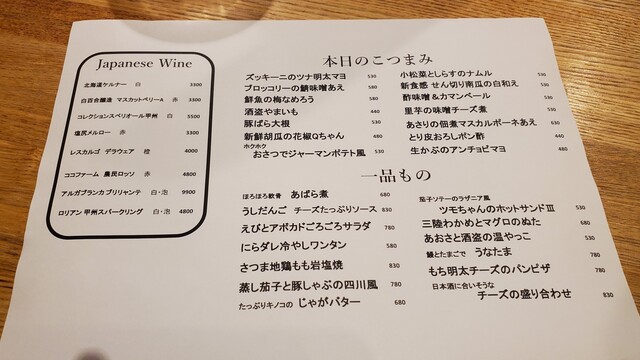 Japanese Wine
北海道ケルナー 白 3300
白百合醸造 マスカットベリーA 赤 3300
コレクションスペリオール甲州 白 5500
塩尻メルロー 赤 3300
レスカルゴ デラウェア 橙 4000
ココファーム 農民ロッソ 赤 4800
アルガブランカ ブリリャンテ 白・泡 9900
ロリアン 甲州スパークリング 白・泡 4800
本日のこつまみ
ズッキーニのツナ明太マヨ 530
ブロッコリーの鯖味噌あえ 580
鮮魚の梅なめろう 580
酒盗やまいも 440
豚ばら大根 530
新鮮胡瓜の花椒Qちゃん 480
ホクホク
おさつでジャーマンポテト風 530
小松菜としらすのナムル 530
新食感 せん切り南瓜の白和え 530
酢味噌&カマンベール 530
里芋の味噌チーズ煮 530
あさりの佃煮マスカルポーネあえ 630
とり皮おろしポン酢 440
生かぶのアンチョビマヨ 480
一品もの
ほろほろ軟骨 あばら煮 680
うしだんご チーズたっぷりソース 830
えびとアボカドごろごろサラダ 780
にらダレ冷やしワンタン 580
さつま地鶏もも岩塩焼 830
蒸し茄子と豚しゃぶの四川風 780
たっぷりキノコの じゃがバター 680
茄子ソテーのラザニア風
ツモちゃんのホットサンドⅢ 530
三陸わかめとマグロのぬた 680
あおさと酒盗の温やっこ 530
鰻とたまごで うなたま 780
もち明太チーズのパンピザ 780
日本酒に合いそうな
チーズの盛り合わせ 830